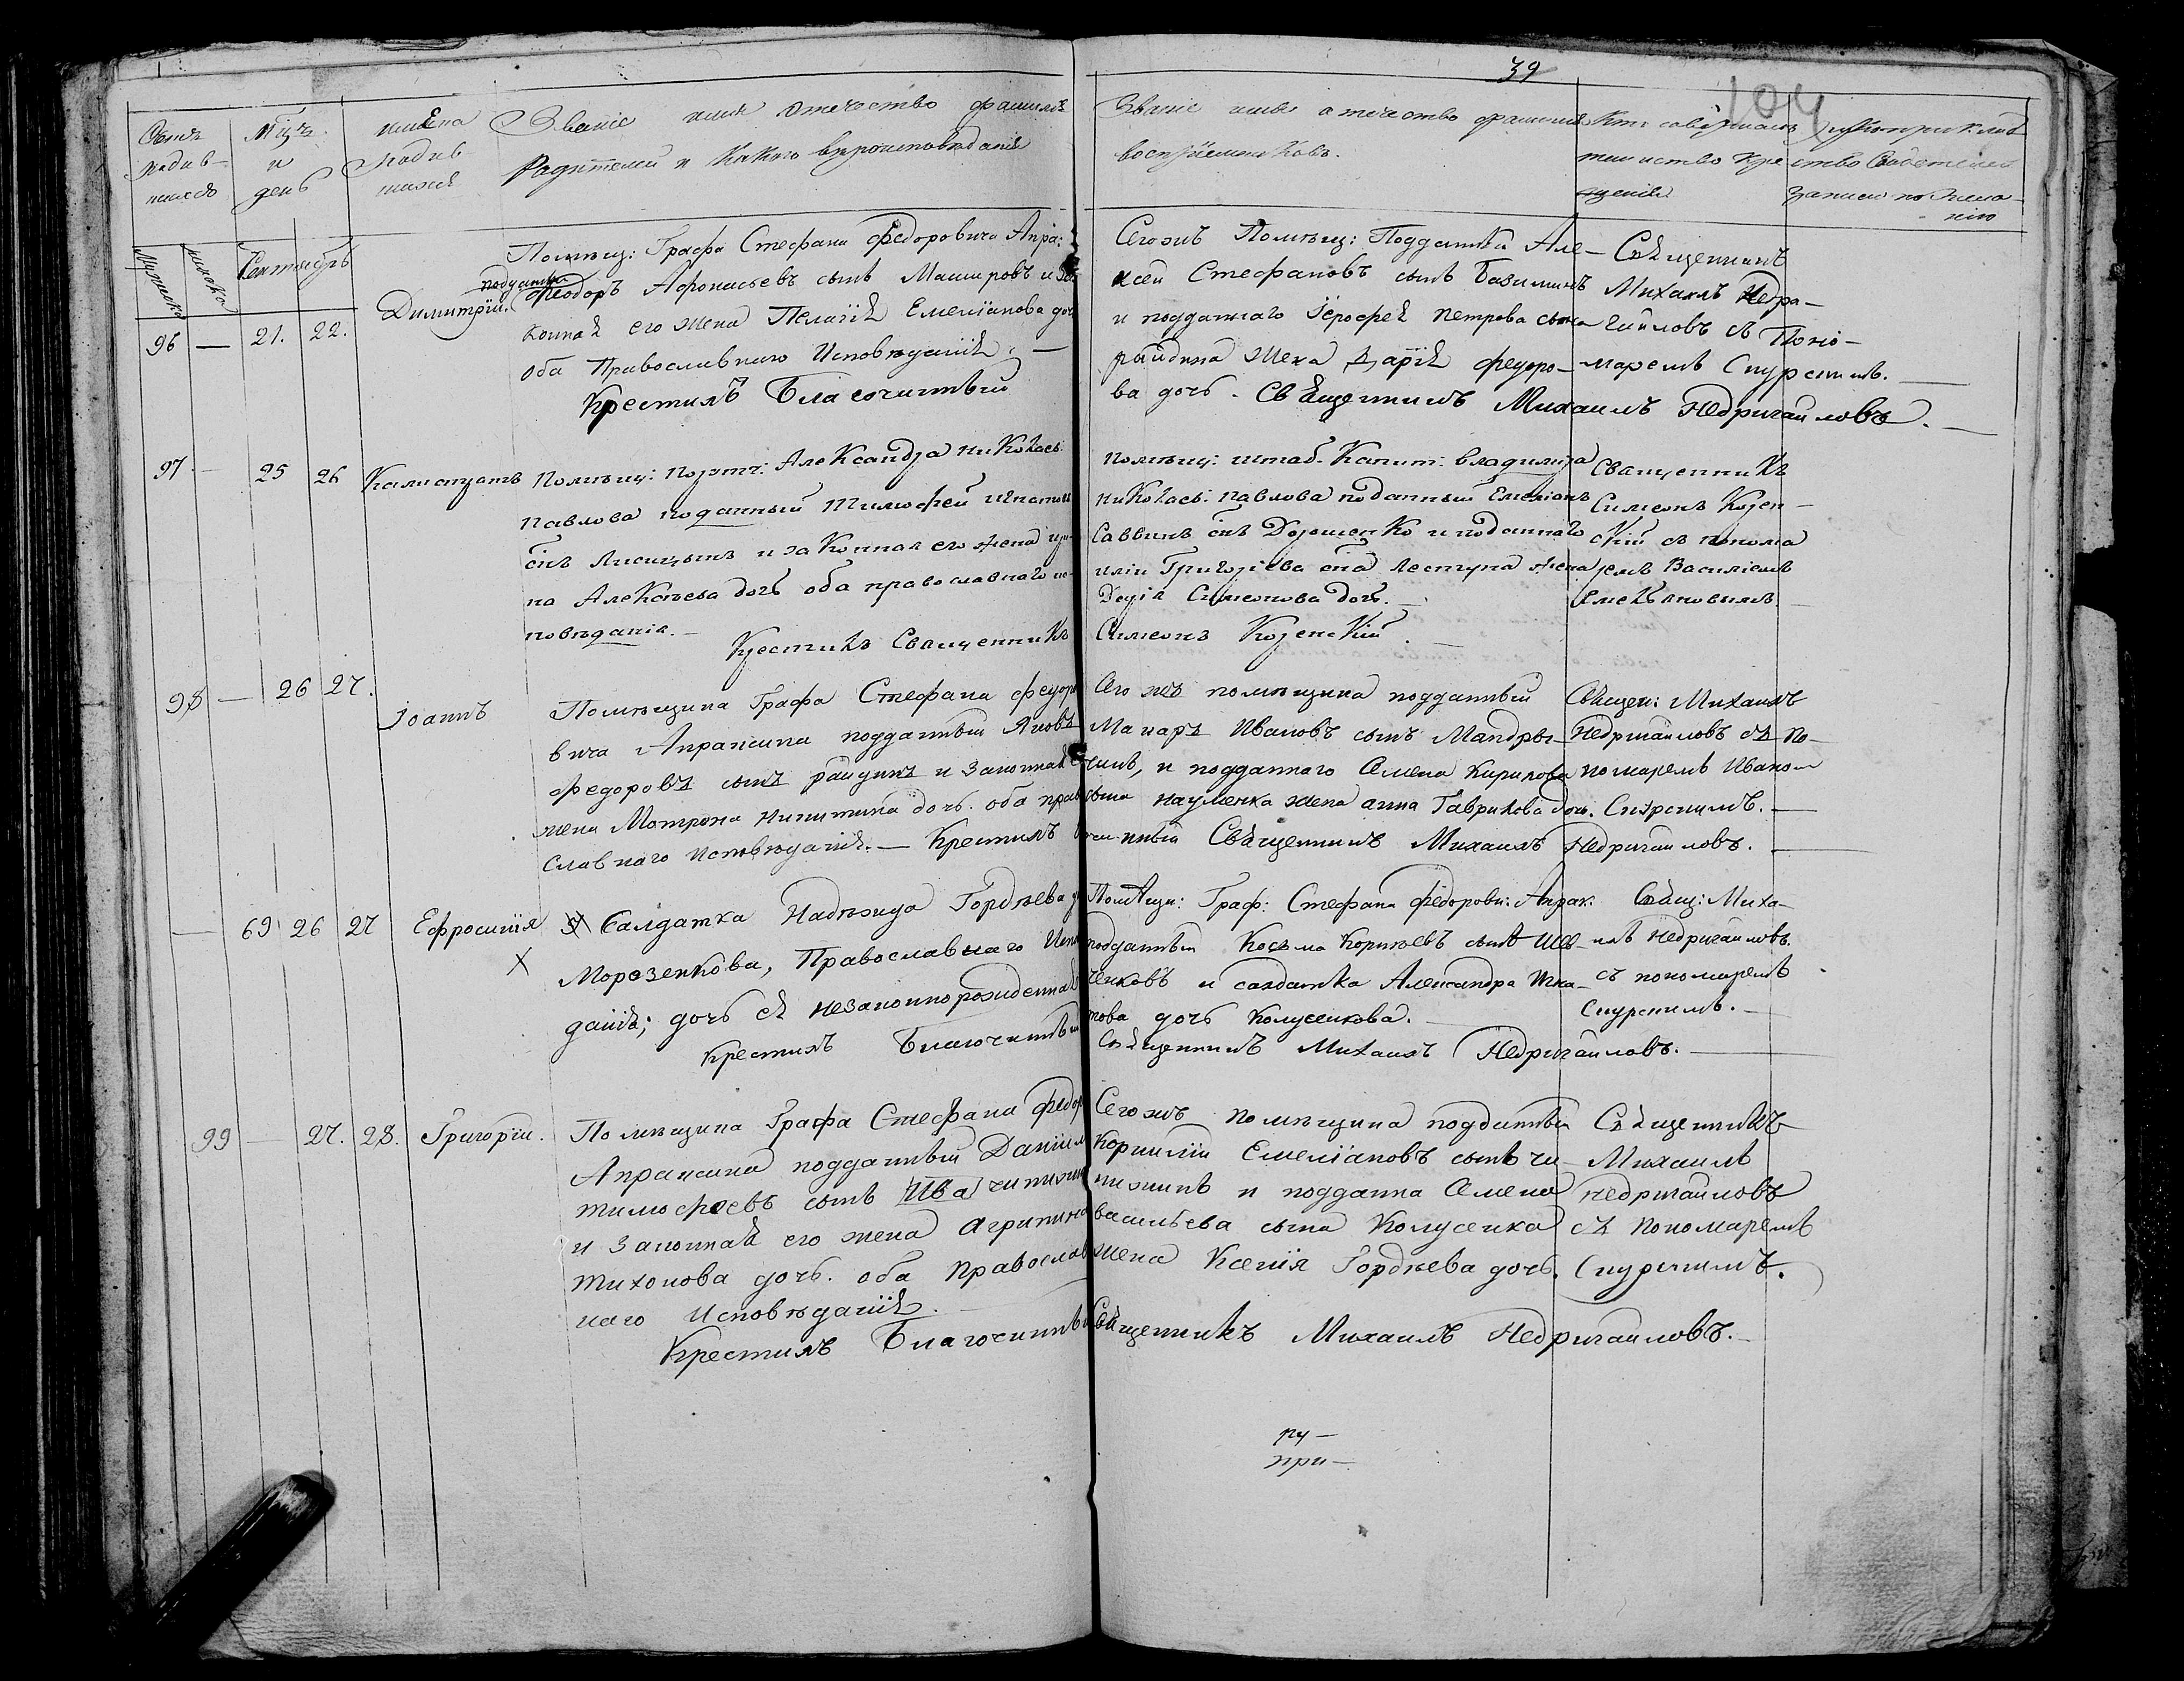 39
104
Счетъ родив-шихся
Мѣцъ и день
имена родив шихся
Званіе имя отечество фамилія
Родителей и какого вѣроисповѣданія
Званіе имя отечество фамилія
воспріемниковъ.
Кто совершалъ
таинство кре
щенія
Рукоприклад
ство Свидетелей
записи по желанію
мужеска
женска
Сентябрь
96 — 21. 22.
Димитрій.
Помѣщ: Графа Стефана Федоровича Апра:
подданный
Феодоръ Афонасьевъ сынъ Машировъ и За
конная его жена Пелагія Емеліанова доч
оба Православнаго Исповѣданія. —
Крестилъ Благочинный
Сегожъ Помѣщ: Подданный Але-
ксей Стефановъ сынъ
и подданнаго Іерофея Петрова сына
райдина Жена Дарія Федоро-
ва дочь. Священникъ Михаилъ Недригайловъ.
Священникъ
Михаилъ Недри-
гайловъ съ Поно-
маремъ Снурснимъ.
97 — 25 26
Калистратъ
Помѣщ: Порутч: Александра Николаев:
Павлова поданный Тимофей Игнатов
снъ Лисицынъ и законная его жена Ири
на Алексѣева дочь оба православнаго ис-
повѣданія. —
Крестилъ Священникъ
помѣщ: штаб-Капит: Владимира
Николаев: Павлова поданный Емеліанъ
Саввинъ снъ Дорошенко и поданнаго
иліи Григорьева сна жена
Симеонова дочь. —
Симеонъ
Священникъ
Симеонъ
скій съ понома
ремъ Василіемъ
Емельяновымъ.
98 — 26 27.
Іоаннъ
Помѣщика Графа Стефана Федоро
вича Апраксина подданный Яковъ
Федоровъ сынъ райдинъ и Законная
жена Матрона Никитина дочь. оба прав
славнаго Исповѣданія. — Крестилъ
Его жъ помѣщика подданный
Макаръ Ивановъ сынъ Мандры-
чинъ, и подданнаго Семена Кирилова
сына науменка жена анна Гаврилова дочь.
чинный Священникъ Михаилъ Недригайловъ. —
Священ: Михаилъ
Недригайловъ съ По-
номаремъ Иваном
Снурснимъ. —
— 69 26 27
Ефросинія
Салдатка Надѣжда Гордѣева д
Морозенкова, Православнаго Испов
данія; дочь ея незаконнорожденная
Крестилъ Благочинный
Помѣщи: Граф: Стефана Федорови: Апрак.
подданный Косьма Корнѣевъ сынъ Шев
ченковъ и салдатка Александра Игна-
това дочь Колусенкова. —
Священникъ Михаилъ Недригайловъ. —
Свящ: Миха-
илъ Недригайловъ.
съ пономаремъ
Снурснимъ. —
99 — 27. 28.
Григорій.
Помѣщика Графа Стефана Федор
Апраксина подданный Даніил
тимофеевъ сынъ Ива чипижин
и Законная его жена Агрипина
Тихонова дочь. оба Православ
наго Исповѣданія. —
Крестилъ Благочинный
Сегожъ помѣщика подданный
Корнилій Емеліановъ сынъ чи-
пижинъ и подданна Семена
васильева сына Колусенка
жена Ксенія Гордѣева дочь.
Священникъ Михаилъ Недригайловъ. —
Священникъ
Михаилъ
недригайловъ
съ Пономаремъ
Снурснимъ.
ру —
при —